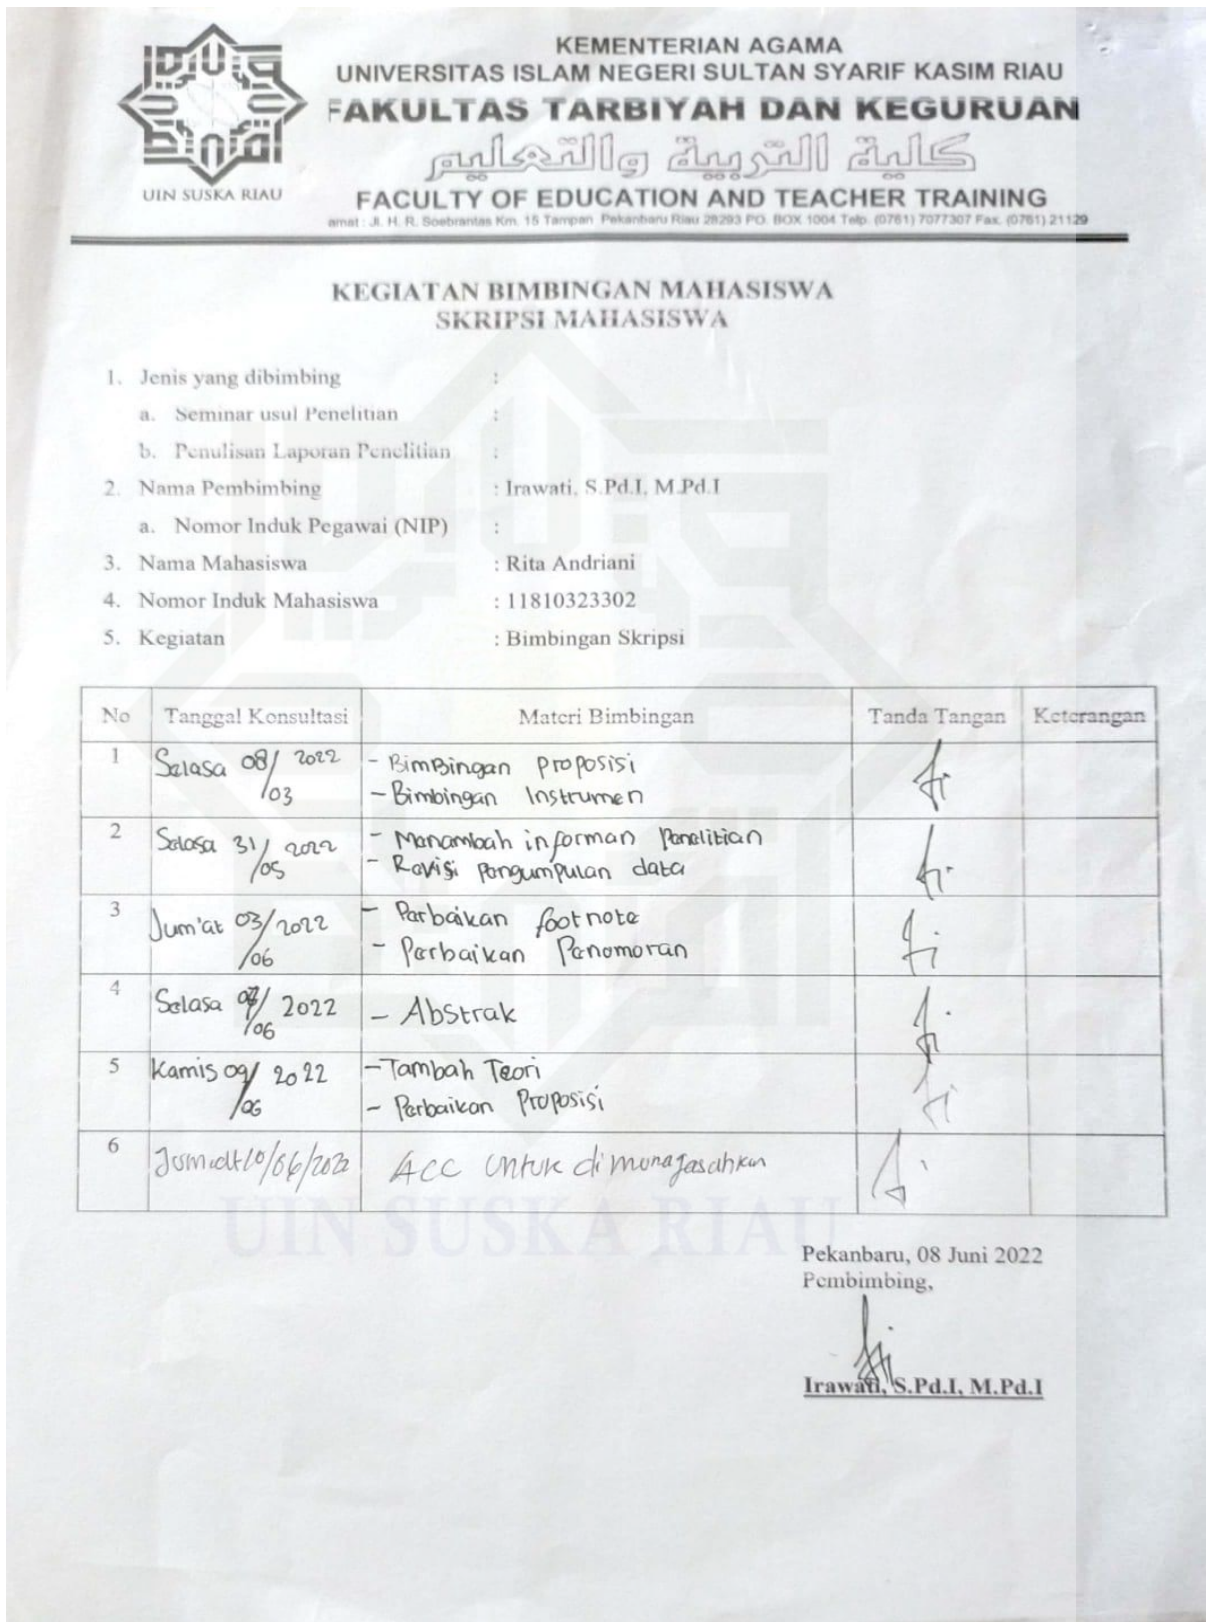 UIN SUSKA RIAU
KEMENTERIAN AGAMA
UNIVERSITAS ISLAM NEGERI SULTAN SYARIF KASIM RIAU
FAKULTAS TARBIYAH DAN KEGURUAN
كلية التربية والتعليم
FACULTY OF EDUCATION AND TEACHER TRAINING
amat : Jl. H. R. Soebrantas Km. 15 Tampan Pekanbaru Riau 28293 PO. BOX 1004 Telp. (0761) 7077307 Fax. (0761) 21129
KEGIATAN BIMBINGAN MAHASISWA
SKRIPSI MAHASISWA
1. Jenis yang dibimbing :
a. Seminar usul Penelitian :
b. Penulisan Laporan Penelitian :
2. Nama Pembimbing : Irawati, S.Pd.I, M.Pd.I
a. Nomor Induk Pegawai (NIP) :
3. Nama Mahasiswa : Rita Andriani
4. Nomor Induk Mahasiswa : 11810323302
5. Kegiatan : Bimbingan Skripsi
No Tanggal Konsultasi Materi Bimbingan Tanda Tangan Keterangan
1 Selasa 08/03 2022 - Bimbingan proposisi
- Bimbingan Instrumen
2 Selasa 31/05 2022 - Menambah informan Penelitian
- Revisi pengumpulan data
3 Jum'at 03/06 2022 - Perbaikan footnote
- Perbaikan Penomoran
4 Selasa 07/06 2022 - Abstrak
5 Kamis 09/06 2022 - Tambah Teori
- Perbaikan Proposisi
6 10/06/2022 ACC untuk dimunaqasahkan
UIN SUSKA RIAU
Pekanbaru, 08 Juni 2022
Pembimbing,
Irawati, S.Pd.I, M.Pd.I